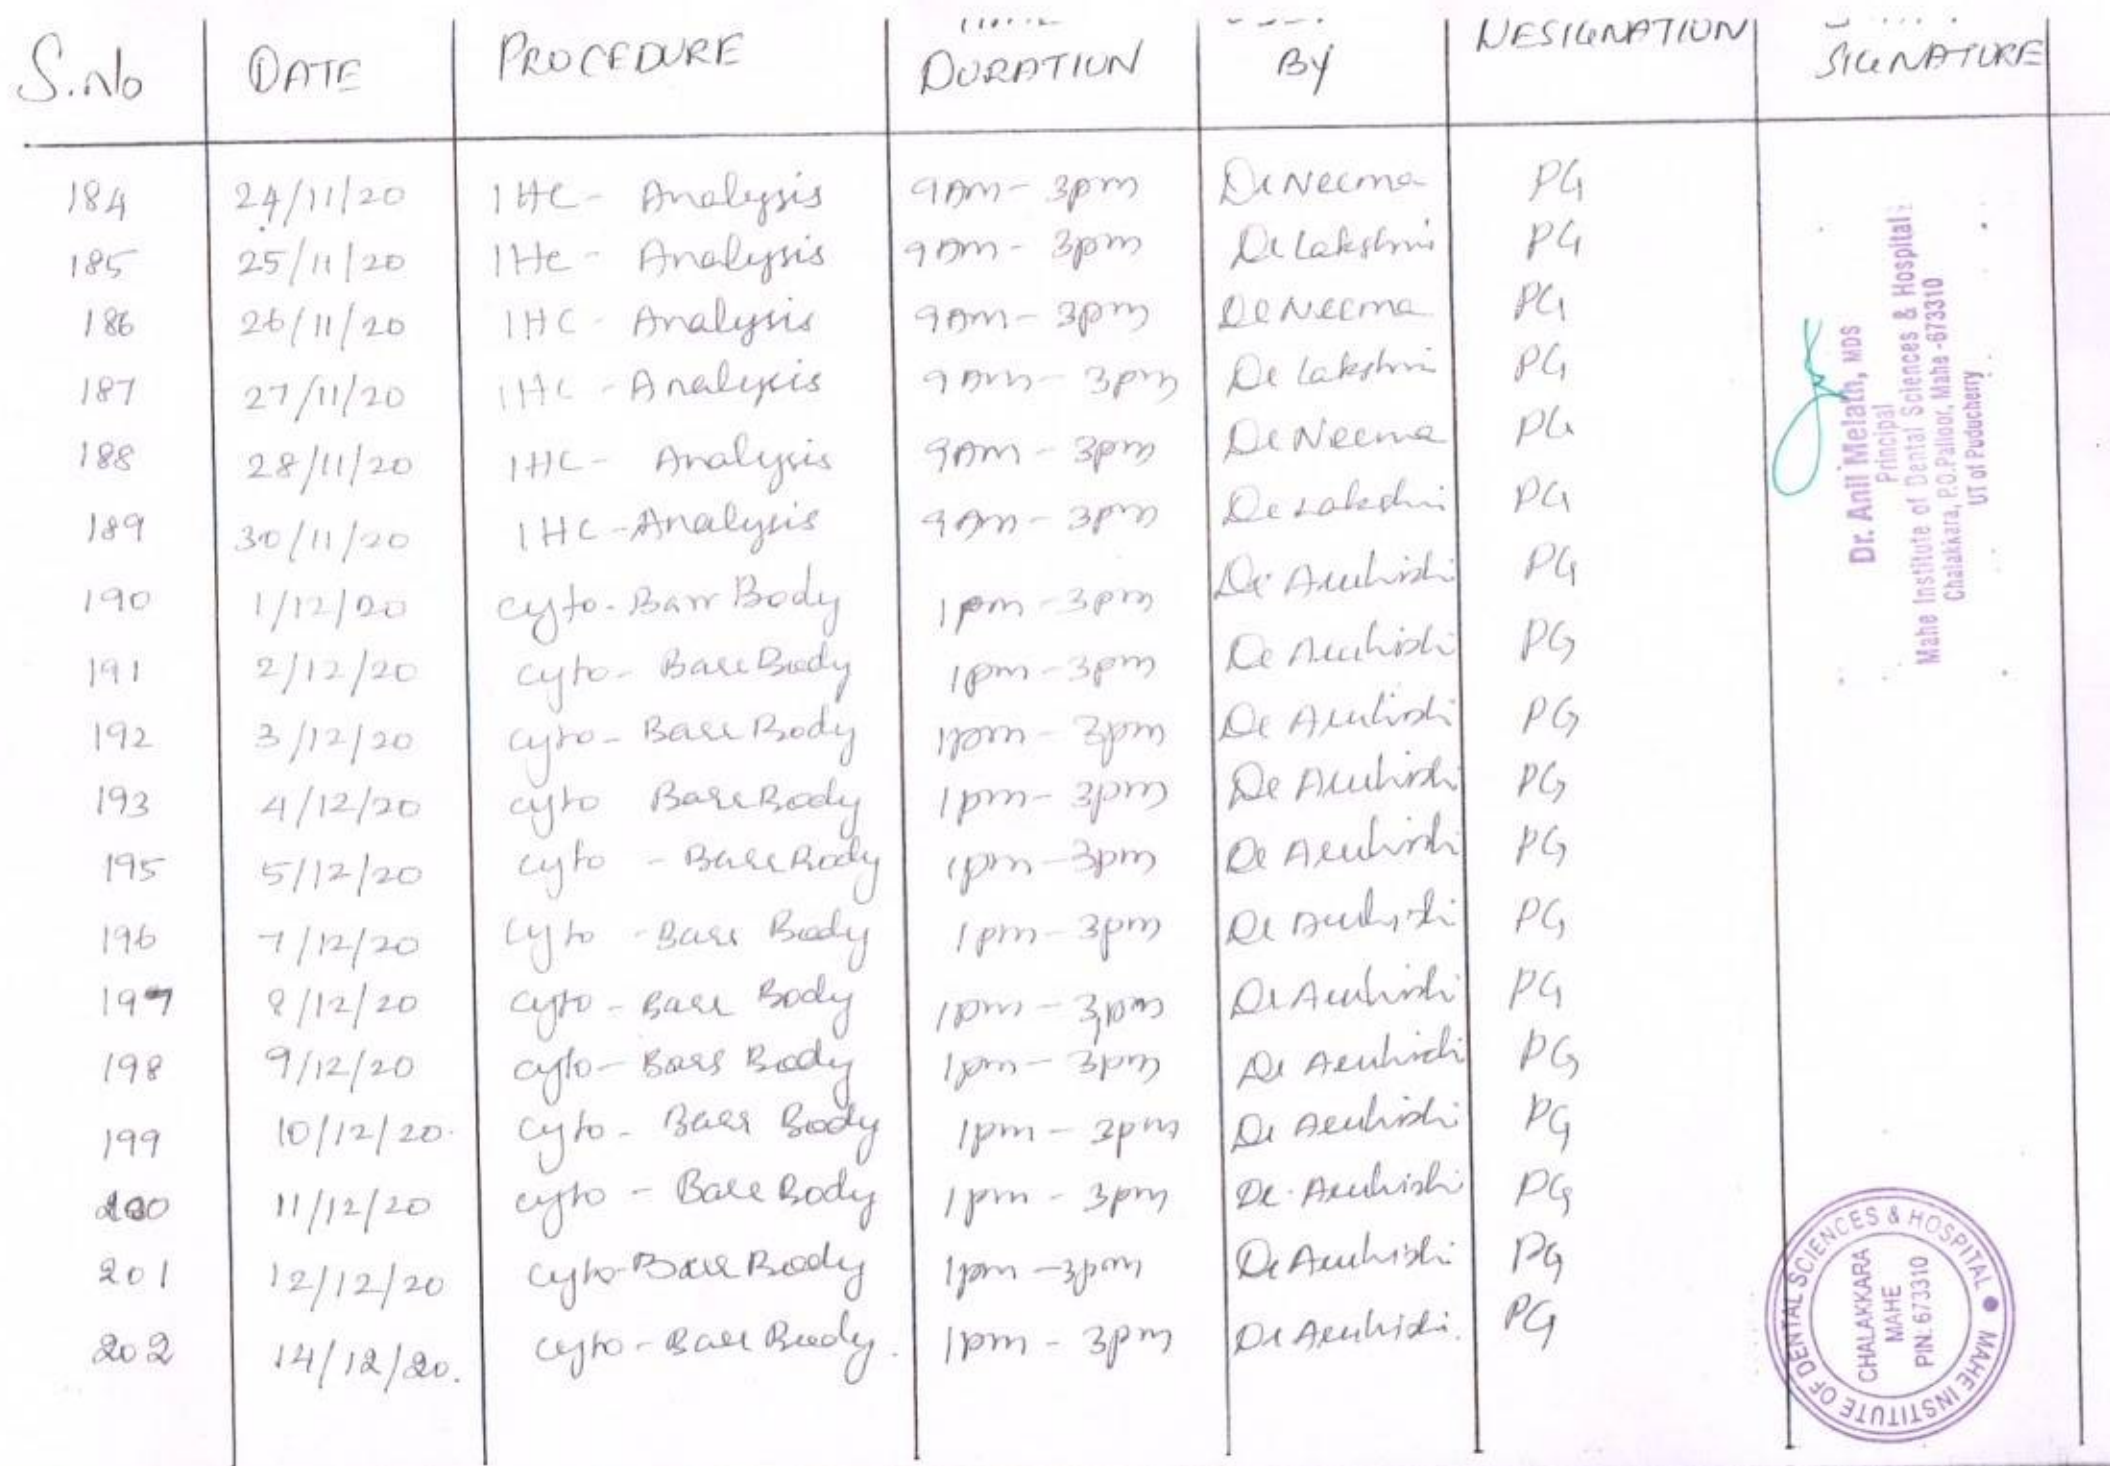 S.No DATE PROCEDURE DURATION BY DESIGNATION SIGNATURE
184 24/11/20 IHC - Analysis 9AM - 3pm Dr Neema PG
185 25/11/20 IHC - Analysis 9AM - 3pm Dr Lakshmi PG
186 26/11/20 IHC - Analysis 9AM - 3pm Dr Neema PG
187 27/11/20 IHC - Analysis 9AM - 3pm Dr Lakshmi PG
188 28/11/20 IHC - Analysis 9AM - 3pm Dr Neema PG
189 30/11/20 IHC - Analysis 9AM - 3pm Dr Lakshmi PG
190 1/12/20 cyto - Barr Body 1pm - 3pm Dr PG
191 2/12/20 cyto - Barr Body 1pm - 3pm Dr PG
192 3/12/20 cyto - Barr Body 1pm - 3pm Dr PG
193 4/12/20 cyto Barr Body 1pm - 3pm Dr PG
195 5/12/20 cyto - Barr Body 1pm - 3pm Dr PG
196 7/12/20 cyto - Barr Body 1pm - 3pm Dr PG
197 8/12/20 cyto - Barr Body 1pm - 3pm Dr PG
198 9/12/20 cyto - Barr Body 1pm - 3pm Dr PG
199 10/12/20. cyto - Barr Body 1pm - 3pm Dr PG
200 11/12/20 cyto - Barr Body 1pm - 3pm Dr. PG
201 12/12/20 cyto - Barr Body 1pm - 3pm Dr PG
202 14/12/20. cyto - Barr Body. 1pm - 3pm Dr PG
Dr. Anil Melath, MDS
Principal
Mahe Institute of Dental Sciences & Hospital
Chalakkara, P.O.Palloor, Mahe -673310
UT of Puducherry
MAHE INSTITUTE OF DENTAL SCIENCES & HOSPITAL
CHALAKKARA
MAHE
PIN: 673310